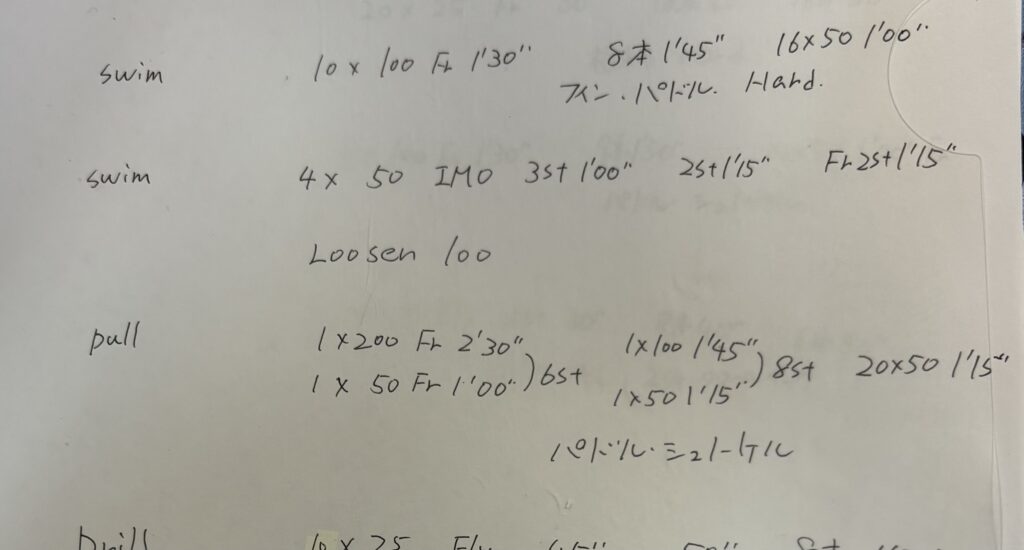 swim 10 x 100 Fr 1'30" 8本 1'45" 16x50 1'00"
フィン・パドル Hard.
swim 4 x 50 IMO 3st 1'00" 2st 1'15" Fr 2st 1'15"
Loosen 100
pull 1 x 200 Fr 2'30" 1x100 1'45"
1 x 50 Fr 1'00" ) 6st 1x50 1'15" ) 8st 20x50 1'15"
パドル・シュノーケル
Drill 10 x 25 Fly